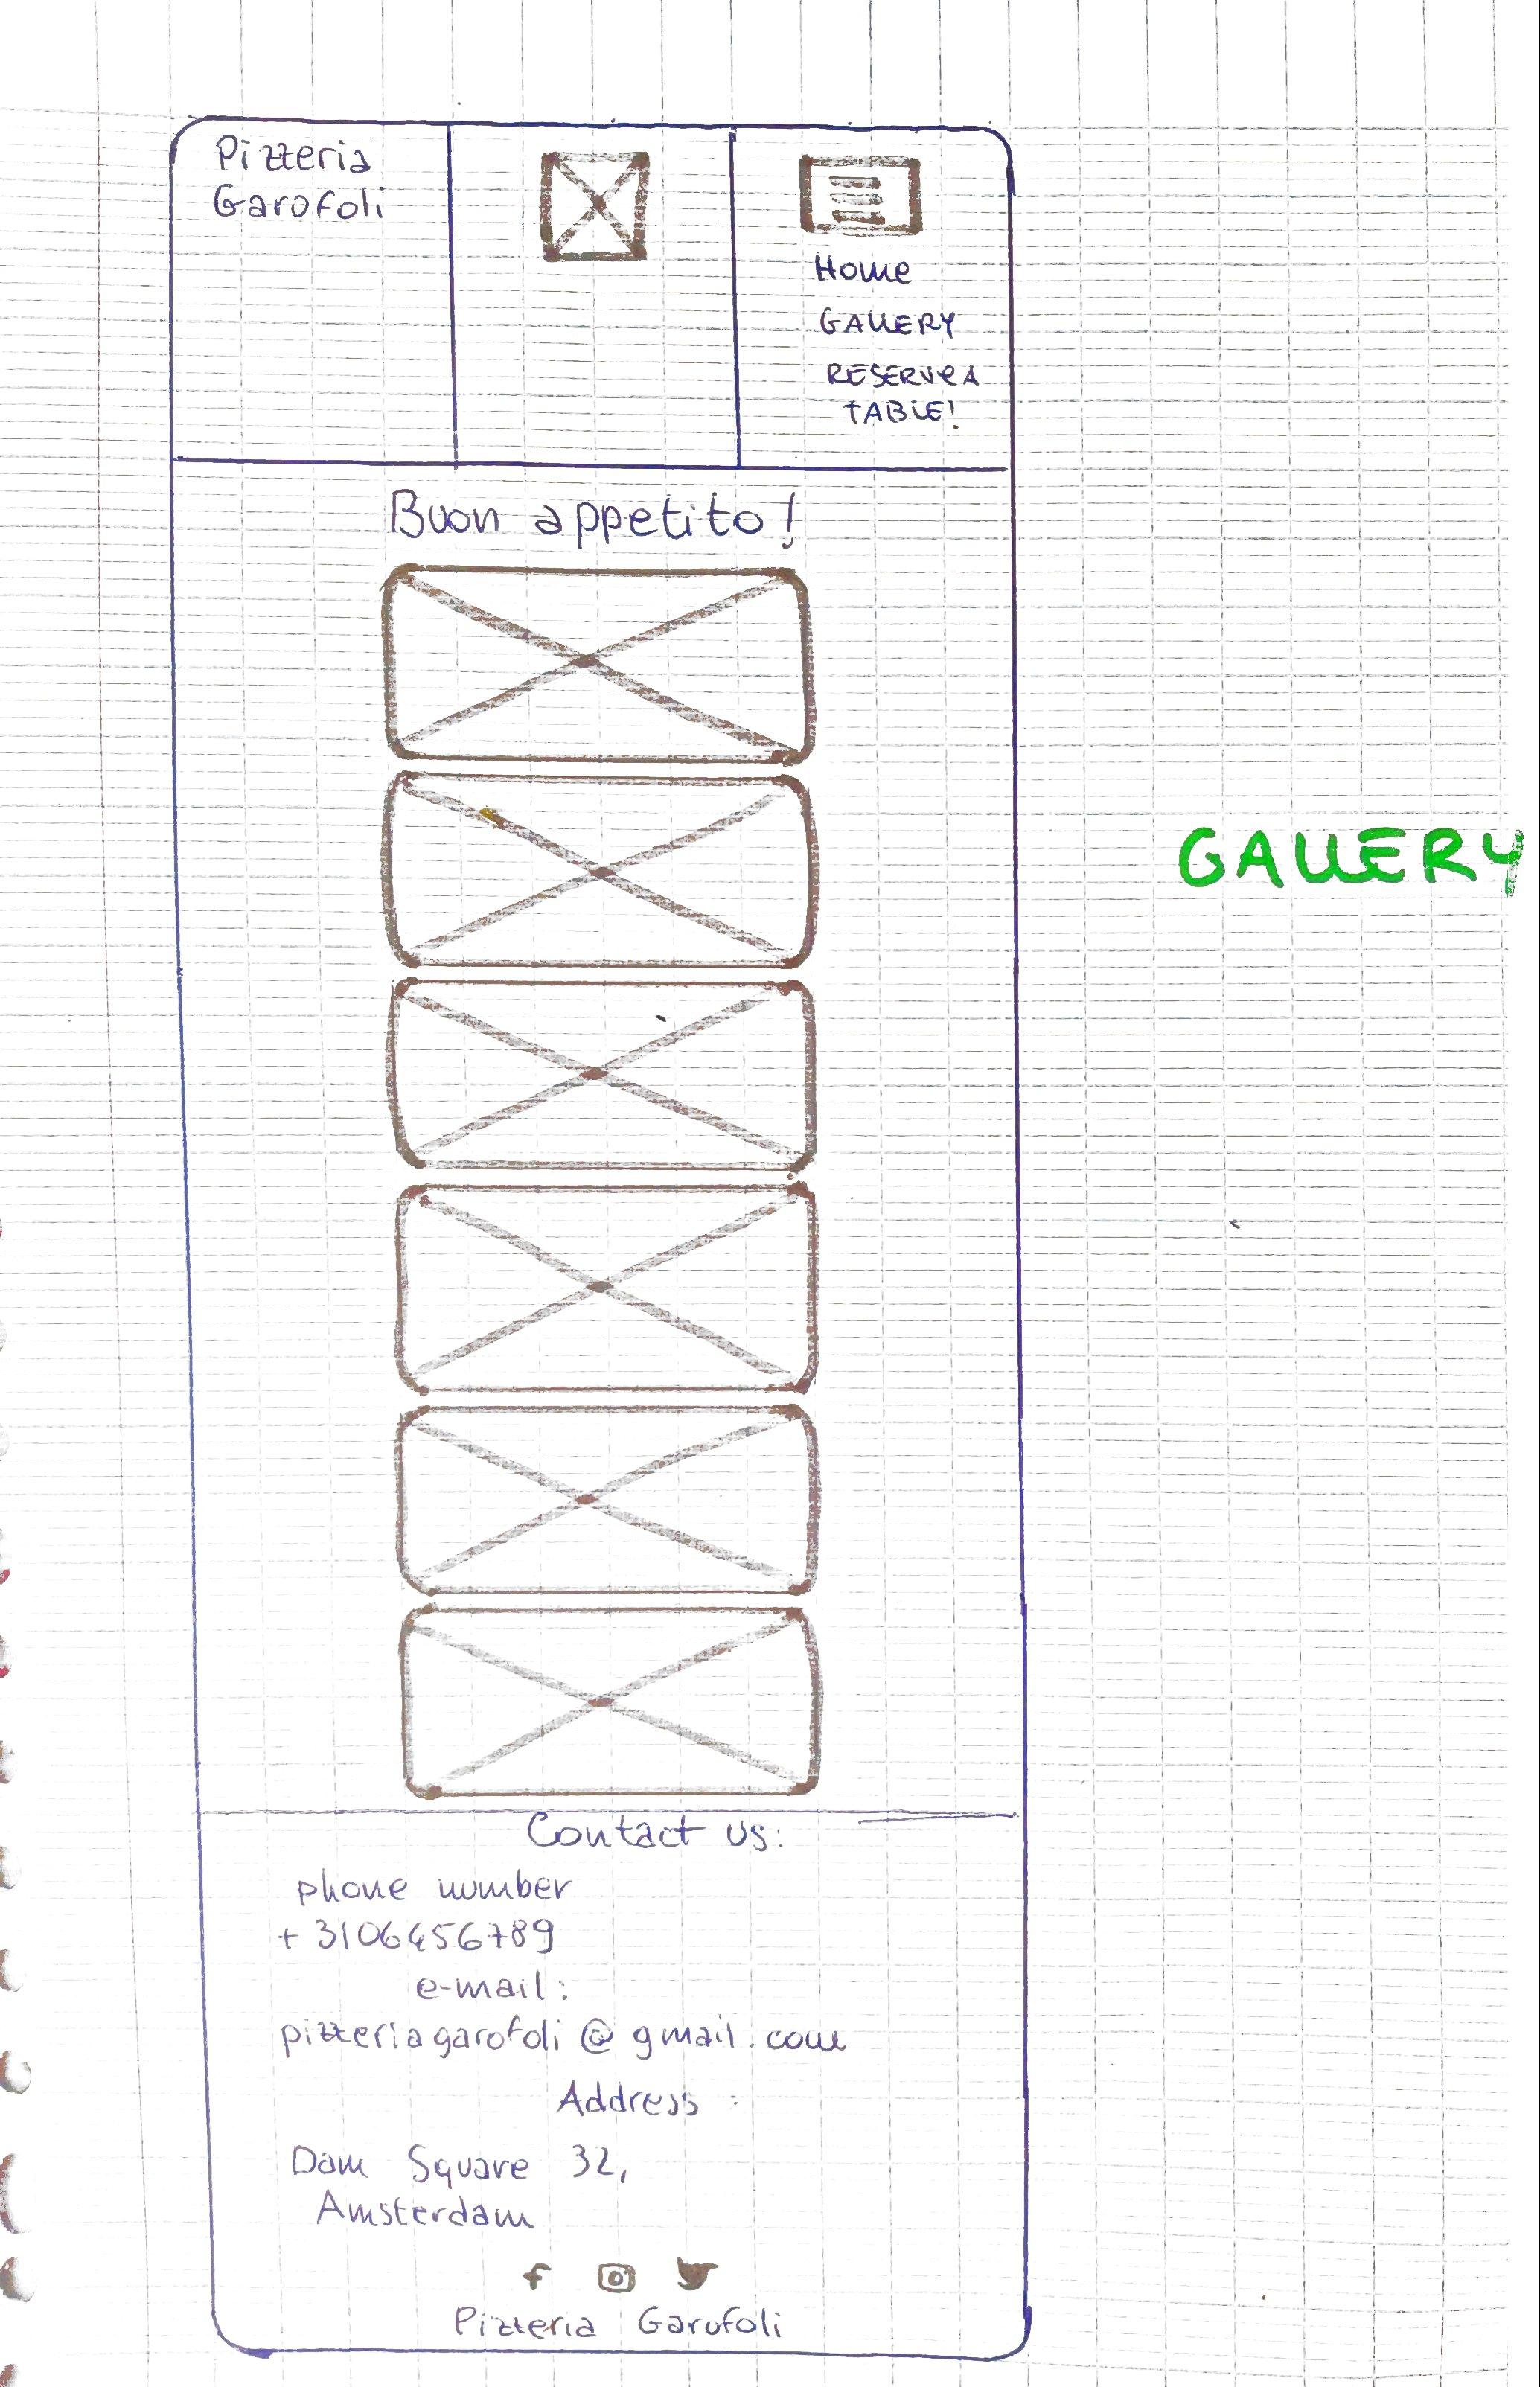 Pizzeria
Garofoli
Home
GALLERY
RESERVE A
TABLE!
Buon appetito!
GALLERY
Contact us:
phone number
+ 3106456789
e-mail:
pizzeriagarofoli@gmail.com
Address :
Dam Square 32,
Amsterdam
Pizzeria Garofoli